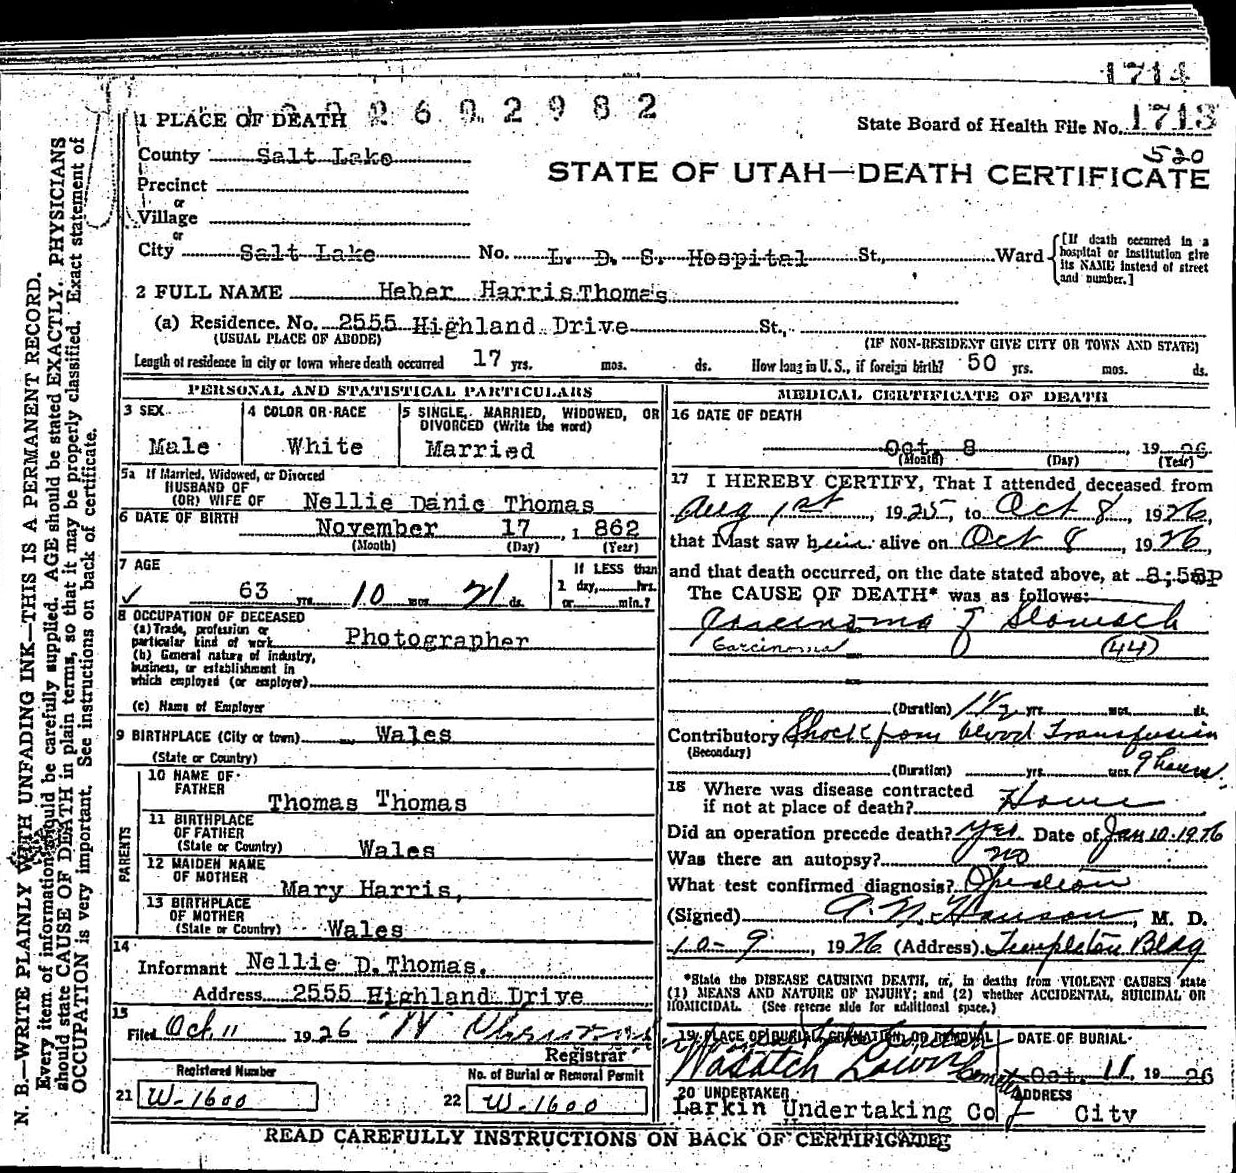 1714
1 PLACE OF DEATH 2602982
State Board of Health File No. 1713
520
County Salt Lake
STATE OF UTAH—DEATH CERTIFICATE
Precinct
or
Village
or
City Salt Lake No. L. D. S. Hospital St., Ward
[If death occurred in a hospital or institution give its NAME instead of street and number.]
2 FULL NAME Heber Harris Thomas
(a) Residence. No. 2555 Highland Drive St.,
(USUAL PLACE OF ABODE) (IF NON-RESIDENT GIVE CITY OR TOWN AND STATE)
Length of residence in city or town where death occurred 17 yrs. mos. ds. How long in U.S., if foreign birth? 50 yrs. mos. ds.
PERSONAL AND STATISTICAL PARTICULARS
3 SEX Male
4 COLOR OR RACE White
5 SINGLE, MARRIED, WIDOWED, OR DIVORCED (Write the word)
Married
5a If Married, Widowed, or Divorced
HUSBAND OF
(OR) WIFE OF Nellie Danie Thomas
6 DATE OF BIRTH November 17, 1862
(Month) (Day) (Year)
7 AGE
63 yrs. 10 mos. 21 ds.
If LESS than
1 day, hrs.
or min.?
8 OCCUPATION OF DECEASED
(a) Trade, profession or
particular kind of work Photographer
(b) General nature of industry,
business, or establishment in
which employed (or employer)
(c) Name of Employer
9 BIRTHPLACE (City or town) Wales
(State or Country)
PARENTS
10 NAME OF FATHER
Thomas Thomas
11 BIRTHPLACE OF FATHER
(State or Country) Wales
12 MAIDEN NAME OF MOTHER
Mary Harris,
13 BIRTHPLACE OF MOTHER
(State or Country) Wales
14
Informant Nellie D. Thomas.
Address 2555 Highland Drive
15
Filed Oct. 11 1926
Registrar
Registered Number
21 W-1600
No. of Burial or Removal Permit
22 W-1600
MEDICAL CERTIFICATE OF DEATH
16 DATE OF DEATH
Oct. 8, 1926
(Month) (Day) (Year)
17 I HEREBY CERTIFY, That I attended deceased from
Aug 1st, 1925, to Oct 8, 1926,
that I last saw him alive on Oct 8, 1926,
and that death occurred, on the date stated above, at 8:58P
The CAUSE OF DEATH* was as follows:
Carcinoma of Stomach
Carcinoma (44)
(Duration) 1 1/2 yrs. mos. ds.
Contributory Shock from blood Transfusion
(Secondary)
(Duration) yrs. mos. 9 hours.
18 Where was disease contracted
if not at place of death? Home
Did an operation precede death? Yes. Date of Jan 10-1926
Was there an autopsy? no
What test confirmed diagnosis? Operation
(Signed) Hanson, M. D.
10-9, 1926 (Address) Templeton Bldg
*State the DISEASE CAUSING DEATH, or, in deaths from VIOLENT CAUSES state
(1) MEANS AND NATURE OF INJURY; and (2) whether ACCIDENTAL, SUICIDAL OR
HOMICIDAL. (See reverse side for additional space.)
19 PLACE OF BURIAL, CREMATION, OR REMOVAL
Wasatch Lawn Cemetery
DATE OF BURIAL
Oct. 11, 1926
20 UNDERTAKER
Larkin Undertaking Co
ADDRESS
City
READ CAREFULLY INSTRUCTIONS ON BACK OF CERTIFICATE
N. B.—WRITE PLAINLY WITH UNFADING INK—THIS IS A PERMANENT RECORD.
Every item of information should be carefully supplied. AGE should be stated EXACTLY. PHYSICIANS
should state CAUSE OF DEATH in plain terms, so that it may be properly classified. Exact statement of
OCCUPATION is very important. See instructions on back of certificate.